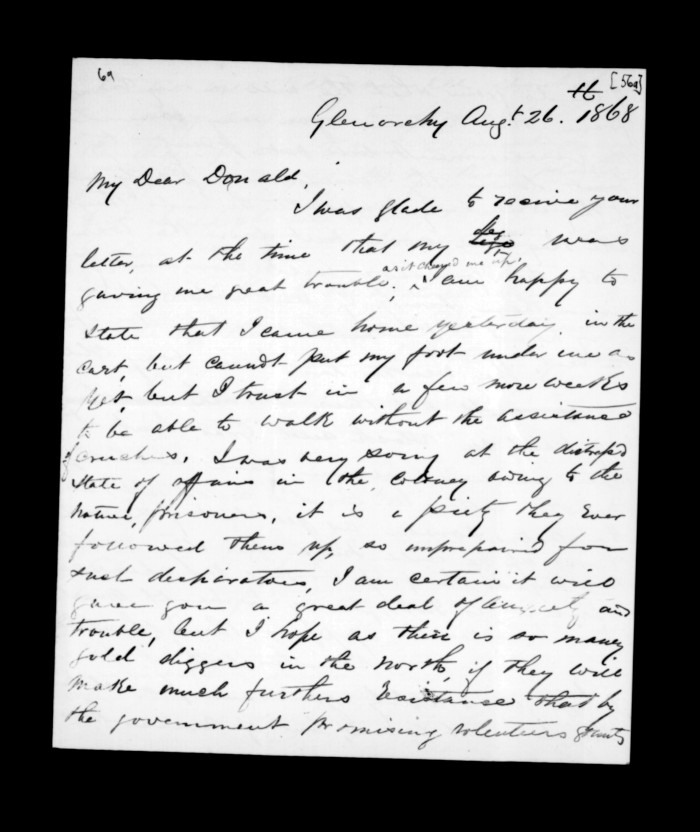 69
[569]
Glenorchy Augt. 26. 1868
My Dear Donald,
I was glade to receive your
letter, at the time that my leg was
as it cheered me up.
gaving me great trouble, I am happy to
state that I came home yesterday, in the
cart, but cannot put my foot under me as
yet, but I trust in a few more weeks
to be able to walk without the assistance
of cruches. I was very sorry at the distrefsd
state of affairs in the Coloney owing to the
native, prisoners, it is a piety they ever
followed them up, so unprepaired for
such desparators, I am certain it will
gave you a great deal of anxiety and
trouble, but I hope as their is so maney
gold diggers in the North, if they will
make much furthers resistance that by
the government promising volenteers grants